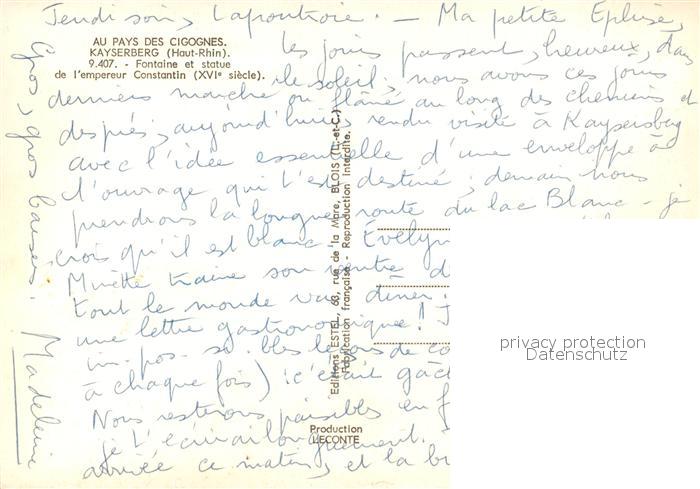 Jeudi soir, Lapoutroie. - Ma petite
AU PAYS DES CIGOGNES.
KAYSERBERG (Haut-Rhin).
9.407. - Fontaine et statue
de l'empereur Constantin (XVIe siècle).
les jours passent, heureux, dans
le soleil; nous avons ces jours
derniers marché ou flâné au long des chemins
des prés; aujourd'hui rendu visite à Kaysersberg
avec l'idée essentielle d'une enveloppe à
l'ouvrage qui t'est destiné; demain nous
prendrons la longue route du lac Blanc - je
crois qu'il est blanc! Évelyn
Minette traîne son ventre d
tout le monde va dîner.
une lettre gastronomique! J
in-pos-si-bles leçons de co
à chaque fois) : c'était gâch
Nous resterons paisibles en f
je t'écrirai longuement.
arrivée ce matin, et la b
Gros, gros baisers.
Madeleine
Editions ESTEL, 63, rue de la Mare, BLOIS (L.-et-C.)
Fabrication française. - Reproduction Interdite.
Production
LECONTE
privacy protection
Datenschutz